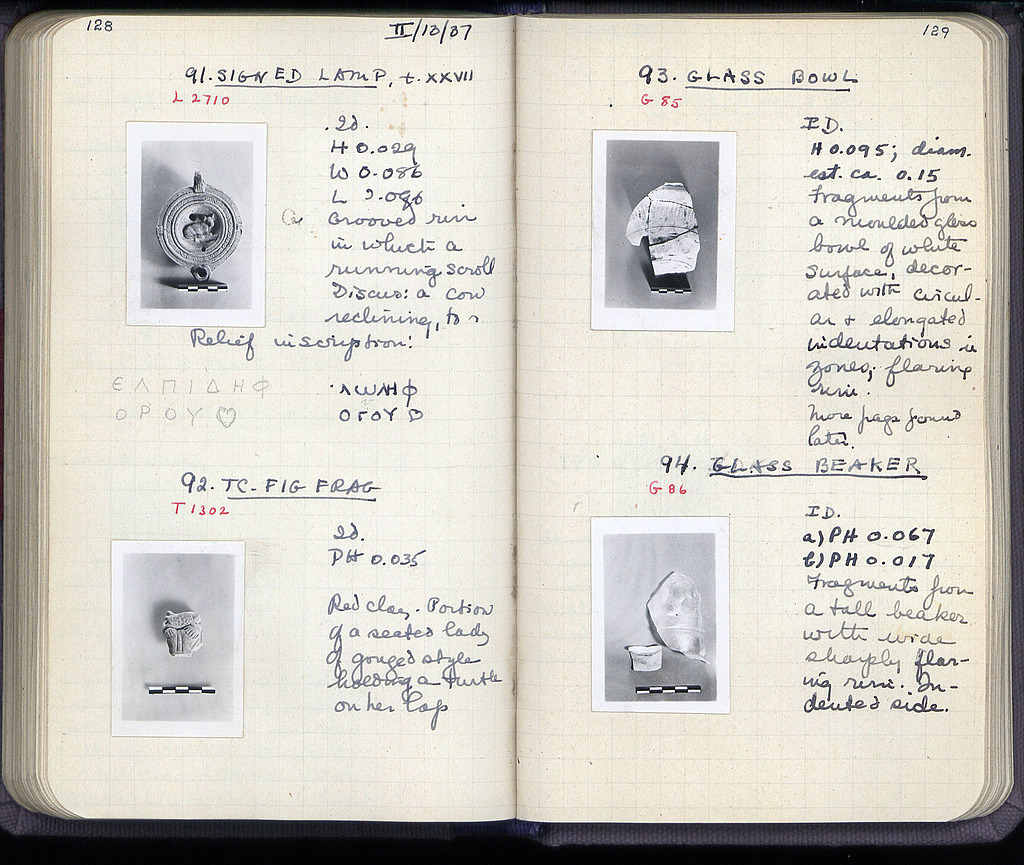 128
II/13/37
91. SIGNED LAMP, t. XXVII
L 2710
Id.
H 0.029
W 0.086
L 0.096
Grooved rim
in which a
running scroll
Discus: a cow
reclining, to
Relief inscription:
ΕΛΠΙΔΗΦ
ΟΡΟΥ♡
ΛΩΛΗΦ
ΟΓΟΥ♡
92. TC. FIG FRAG
T 1302
Id.
PH 0.035
Red clay. Portion
of a seated lady
of gouged style
holding a turtle
on her lap
129
93. GLASS BOWL
G 85
ID.
H 0.095; diam.
est. ca. 0.15
Fragments from
a moulded glass
bowl of white
surface, decor-
ated with circul-
ar + elongated
indentations in
zones; flaring
rim.
More frags found
later.
94. GLASS BEAKER
G 86
ID.
a) PH 0.067
b) PH 0.017
Fragments from
a tall beaker
with wide
sharply flar-
ing rim. In-
dented side.